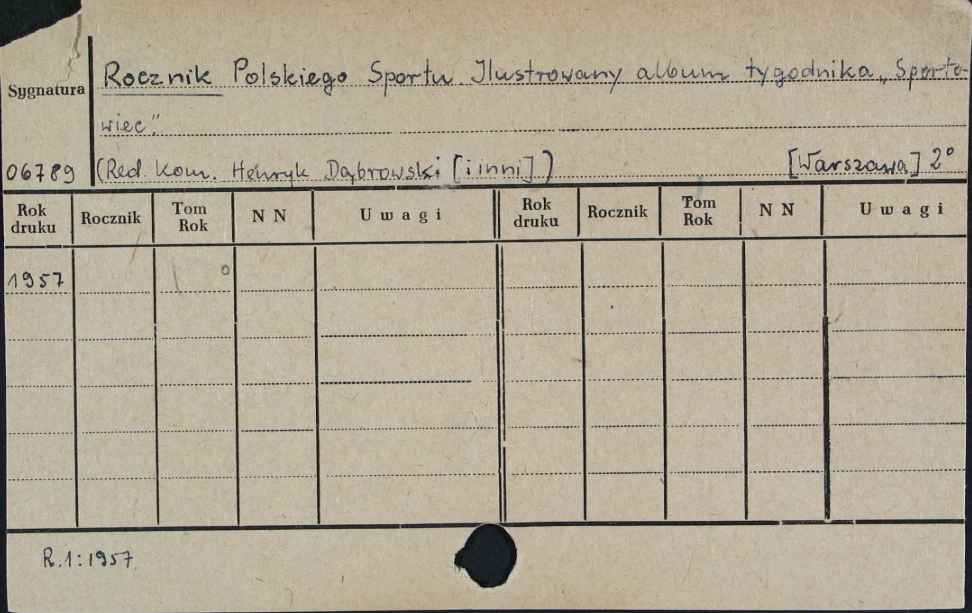 Rocznik Polskiego Sportu. Ilustrowany album tygodnika „Sporto-
Sygnatura
wiec".
06789 (Red. kom. Henryk Dąbrowski [i inni]) [Warszawa] 2°
Rok druku Rocznik Tom Rok N N Uwagi Rok druku Rocznik Tom Rok N N Uwagi
1957
R.1:1957